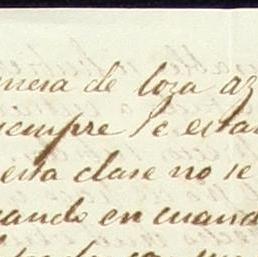 mera de loza az
siempre se estan
esta clase no se
cando en cuand